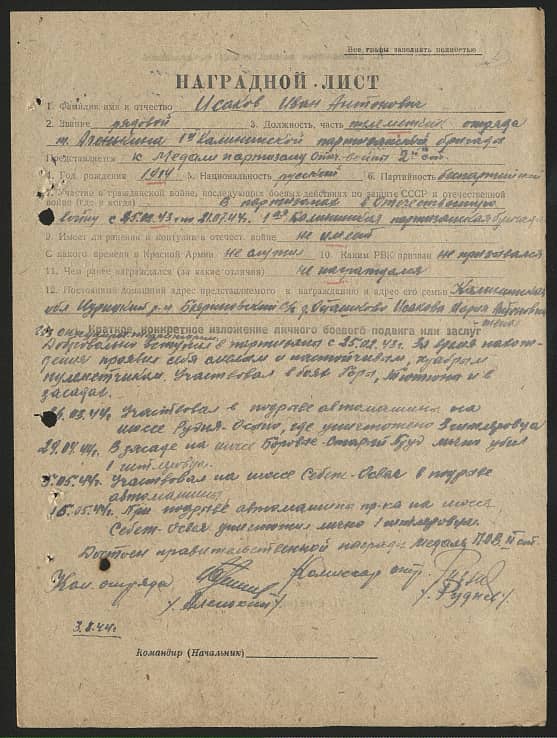 Все графы заполнять полностью
НАГРАДНОЙ ЛИСТ
1. Фамилия имя и отчество Исаков Иван Антонович
2. Звание рядовой 3. Должность, часть пулеметчик отряда
т. 1ой Калининской партизанской бригады
Представляется к Медали партизану Отеч. войны 2ой ст.
4. Год рождения 1914 5. Национальность русский 6. Партийность беспартийный
7. Участие в гражданской войне, последующих боевых действиях по защите СССР и отечественной
войне (где и когда) В партизанах в Отечественную
войну с 25.02.43 по 21.07.44г. 1ая Калининская партизанская бригада
9. Имеет ли ранения и контузии в отечест. войне не имеет
С какого времени в Красной Армии не служил 10. Каким РВК призван не призывался
11. Чем ранее награждался (за какие отличия) не награждался
12. Постоянный домашний адрес представляемого к награждению и адрес его семьи Калининская
обл. р-н с/с д. Исакова Мария Антоновна
Краткое, конкретное изложение личного боевого подвига или заслуг
Добровольно вступил в партизаны с 25.02.43г. За время
проявил себя смелым и настойчивым, храбрым
пулеметчиком. Участвовал в боях и в
засадах.
26.03.44г. Участвовал в подрыве автомашины на
шоссе Рудня-Осыно, где уничтожено 3 гитлеровца
29.04.44г. В засаде на шоссе лично убил
1 гитлеровца.
3.05.44г. Участвовал на шоссе Себеж-Освея в подрыве
автомашины
15.05.44г. При подрыве автомашины пр-ка на шоссе
Себеж-Освея уничтожил лично 1 гитлеровца.
Достоин правительственной награды медаль П.О.В. II ст.
Ком. отряда Комиссар отр.
/Руднев/
3.8.44г.
Командир (Начальник)